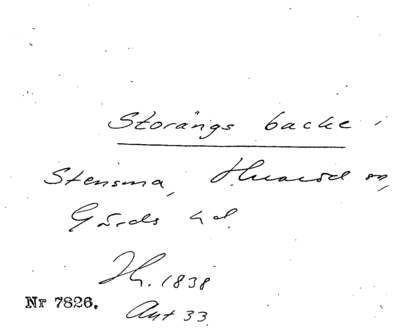 Storängs backe
Stensma, Huaröd sn,
Gärds hd.
Th. 1838
Nr 7826.
Ant 33